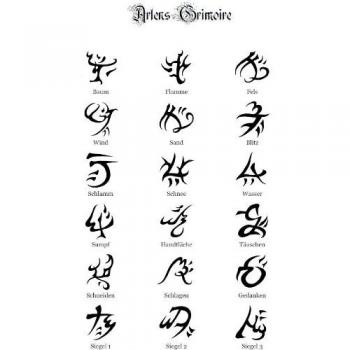 Arlens Grimoire
Baum Flamme Fels
Wind Sand Blitz
Schlamm Schnee Wasser
Sumpf Handfläche Täuschen
Schneiden Schlagen Gedanken
Siegel 1 Siegel 2 Siegel 3